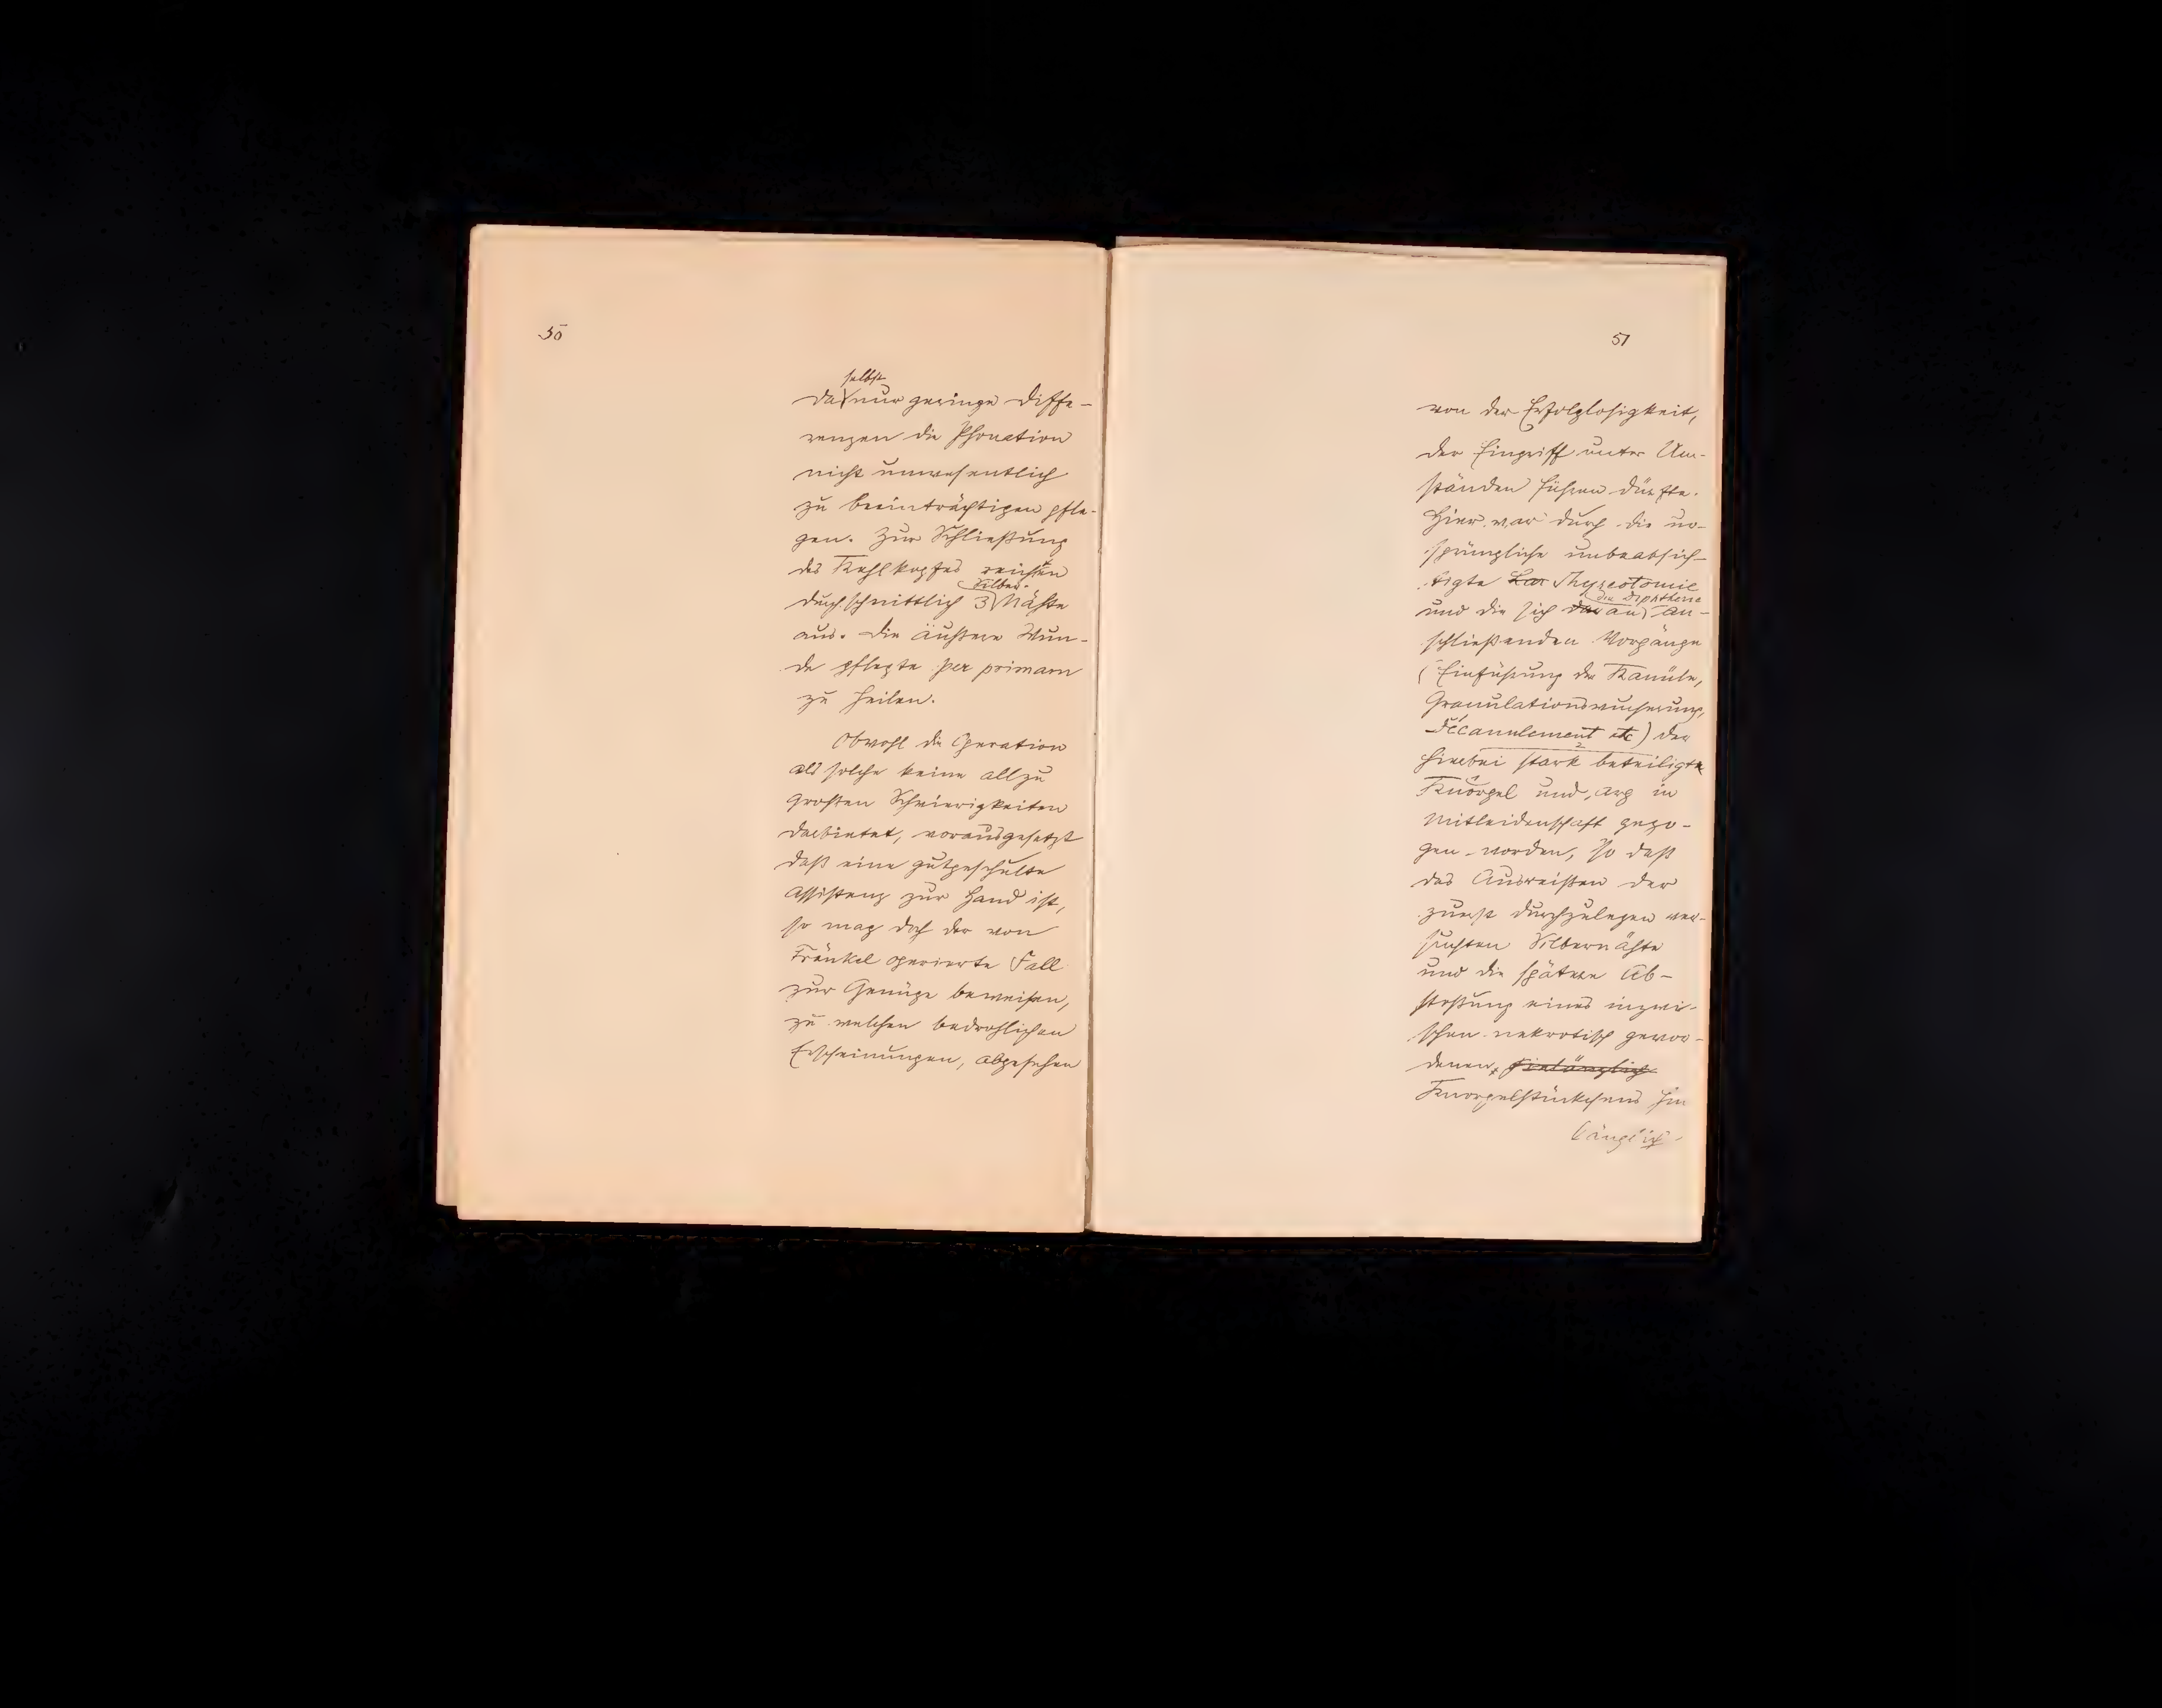 50
selbst
da nur geringe Diffe-
renzen die Phonation
nicht unwesentlich
zu beeinträchtigen pfle-
gen. Zur Schließung
des Kehlkopfes reichten
Silber-
durchschnittlich 3 Nähte
aus. Die äußere Wun-
de pflegte per primam
zu heilen.
Obwohl die Operation
als solche keine allzu
großen Schwierigkeiten
darbietet, vorausgesetzt
daß eine gutgeschulte
Assistenz zur Hand ist,
so mag doch der von
Fränkel operierte Fall
zur Genüge beweisen,
zu welchen bedrohlichen
Erscheinungen, abgesehen
51
von der Erfolglosigkeit,
der Eingriff unter Um-
ständen führen dürfte.
Hier war durch die ur-
sprüngliche unbeabsich-
tigte Lar Thyreotomie
die Diphtherie
und die sich an an-
schließenden Vorgänge
(Einführung der Kanüle,
Granulationswucherung,
Décanulement etc) der
hierbei stark beteiligte
Knorpel und, arg in
Mitleidenschaft gezo-
gen worden, so daß
das Ausreißen der
zuerst durchzulegen ver-
suchten Silbernähte
und die spätere Ab-
stoßung eines inzwi-
schen nekrotisch gewor-
denen hinlänglich
Knorpelstückchens hin
länglich